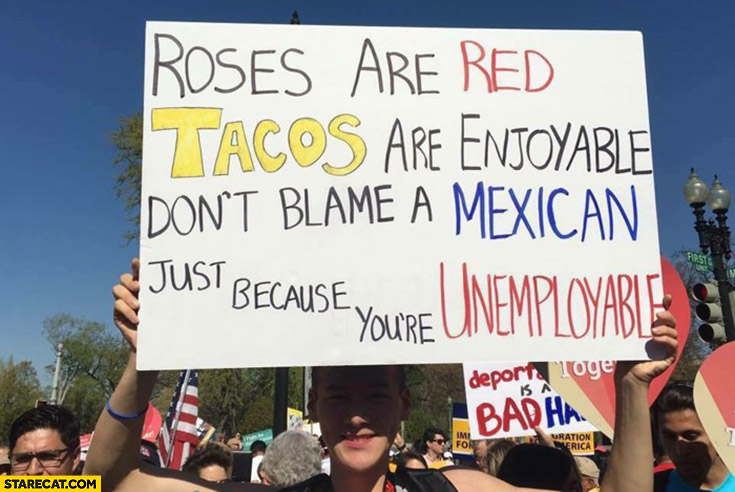 ROSES ARE RED
TACOS ARE ENJOYABLE
DON'T BLAME A MEXICAN
JUST BECAUSE YOU'RE UNEMPLOYABLE
FIRST
Toge
IS A
BAD HA
IM
FO
GRATION
ERICA
STARECAT.COM